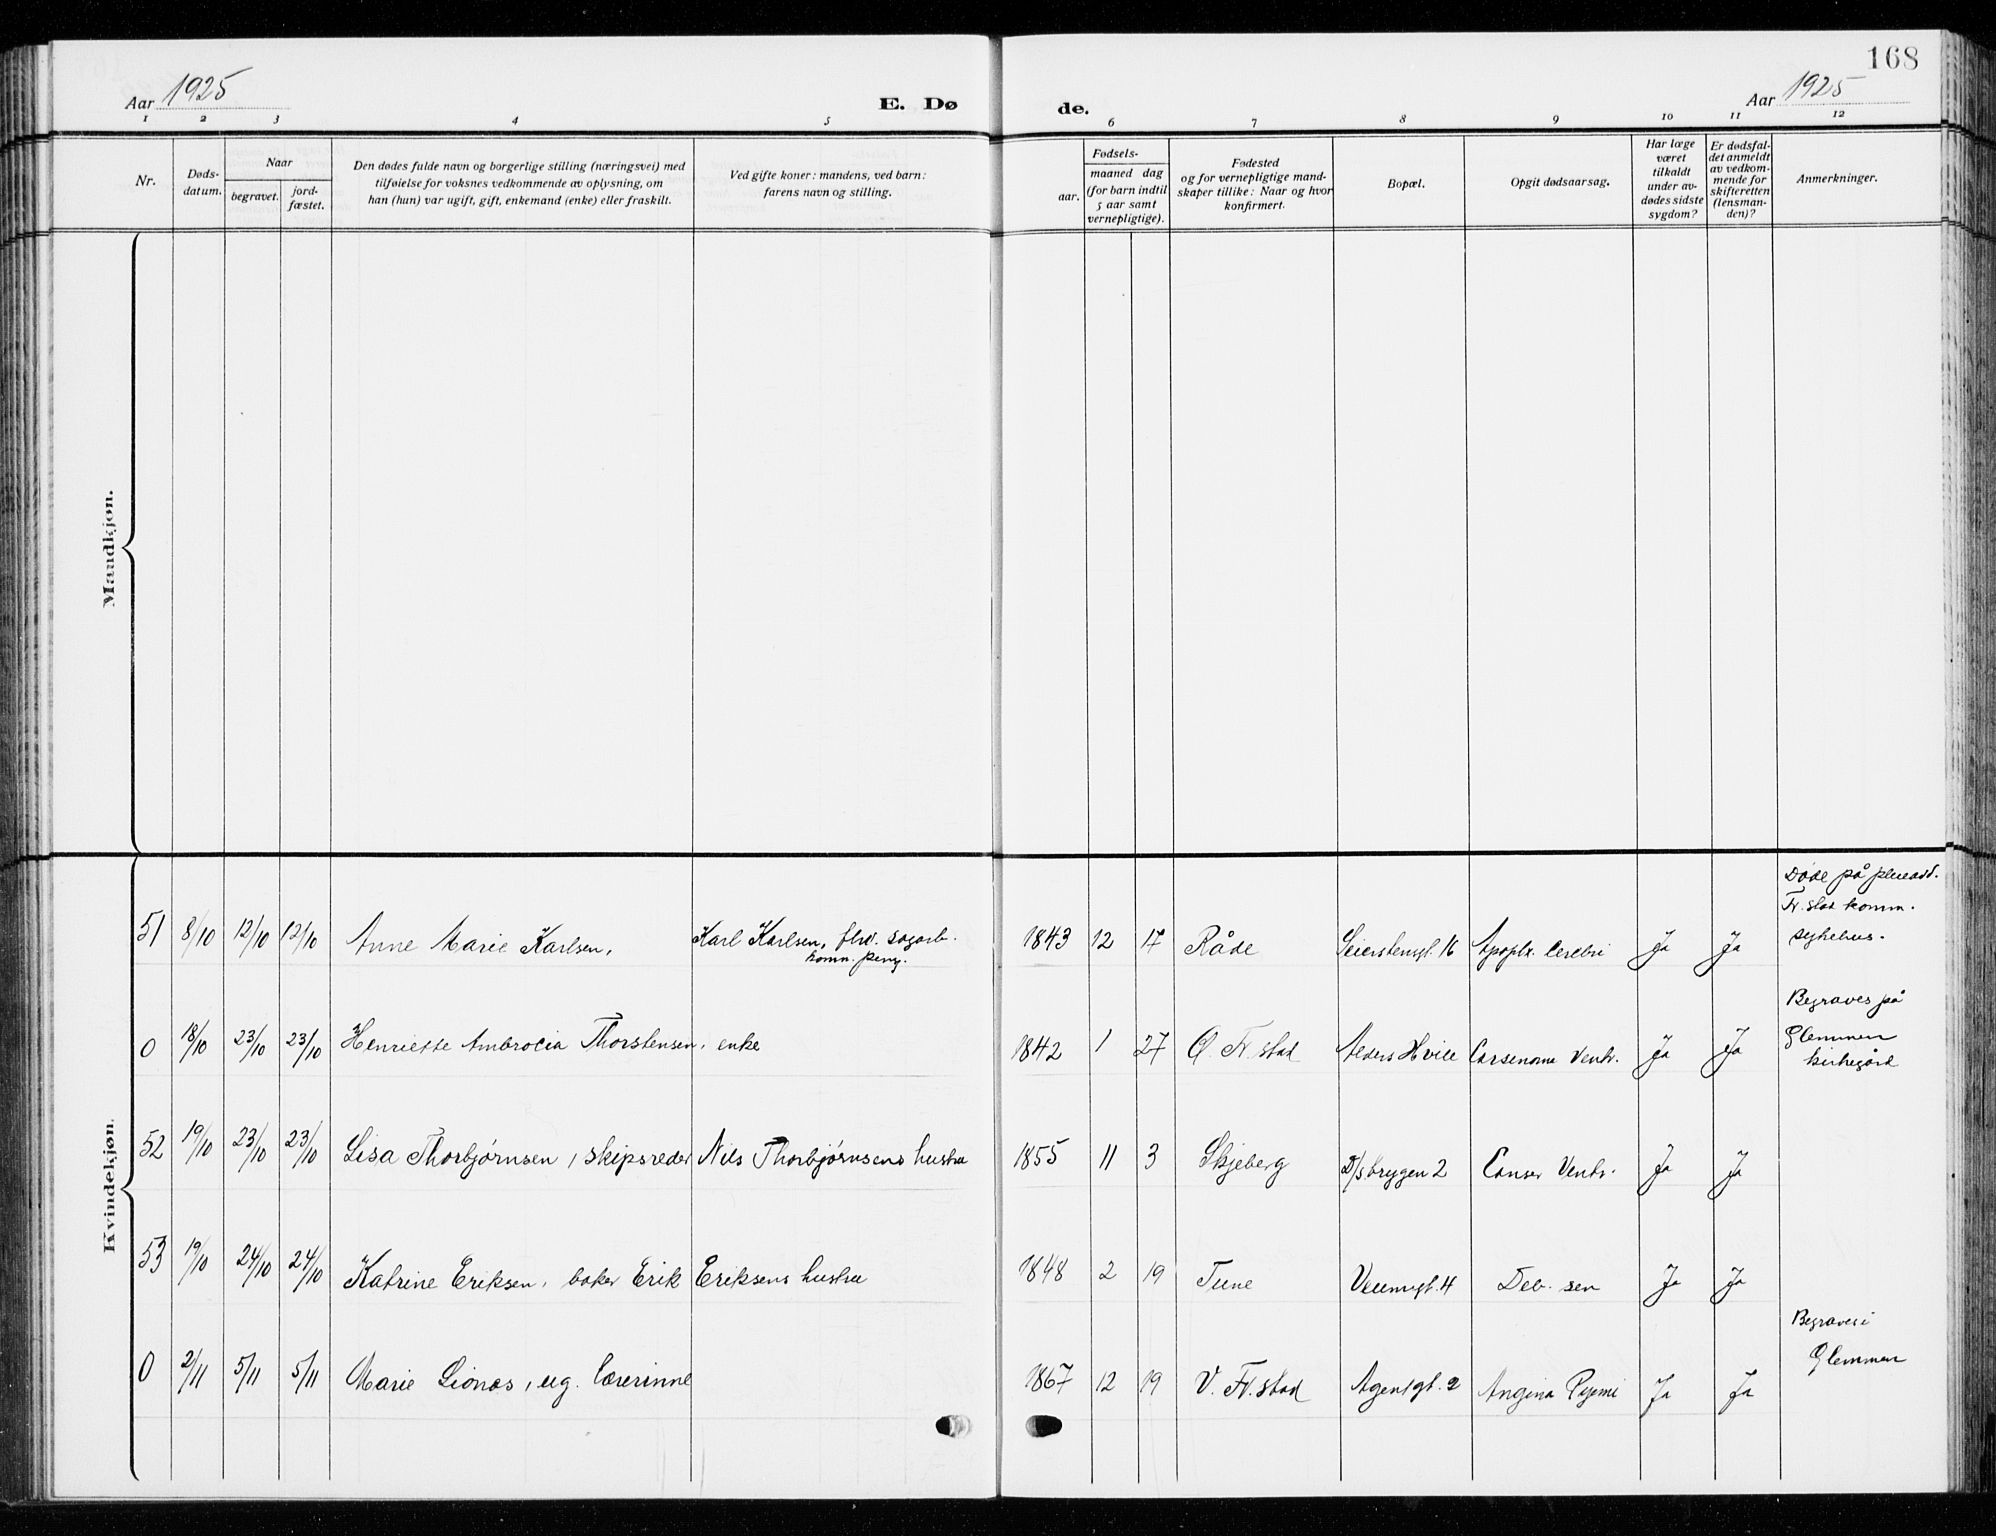 168
Aar 1925
E. Dø
de.
Aar 1925
1 2 3 4 5 6 7 8 9 10 11 12
Nr.
Døds-
datum.
Naar
begravet.
jord-
fæstet.
Den dødes fulde navn og borgerlige stilling (næringsvei) med
tilføielse for voksnes vedkommende av oplysning, om
han (hun) var ugift, gift, enkemand (enke) eller fraskilt.
Ved gifte koner: mandens, ved barn:
farens navn og stilling.
Fødsels-
aar.
maaned dag
(for barn indtil
5 aar samt
vernepligtige).
Fødested
og for vernepligtige mand-
skaper tillike: Naar og hvor
konfirmert.
Bopæl.
Opgit dødsaarsag.
Har læge
været
tilkaldt
under av-
dødes sidste
sygdom?
Er dødsfal-
det anmeldt
av vedkom-
mende for
skifteretten
(lensman-
den)?
Anmerkninger.
Mandkjøn.
Kvindekjøn.
51 8/10 12/10 12/10 Anne Marie Karlsen, Karl Karlsen, fhv. sagarb. 1843 12 17 Råde Seierstensgt. 16 Apoplx. Cerebri Ja Ja
komm. peng.
Døde på pleieavd.
Fr.stad komm.
sykehus.
0 18/10 23/10 23/10 Henriette Ambrocia Thorstensen, enke 1842 1 27 Ø. Fr.stad Alders Hvile Carsenome Ventr. Ja Ja
Begraves på
Glemmen
kirkegård
52 19/10 23/10 23/10 Lisa Thorbjørnsen, skipsreder Nils Thorbjørnsens hustru 1855 11 3 Skjeberg D/s.bryggen 2 Canser Ventr. Ja Ja
53 19/10 24/10 24/10 Katrine Eriksen, baker Erik Eriksens hustru 1848 2 19 Tune Veumsgt. 4 Deb. sen Ja Ja
0 2/11 5/11 5/11 Marie Lionæs, ug. lærerinne 1867 12 19 V. Fr.stad Agentgt. 2 Angina Pyemi Ja Ja
Begraves i
Glemmen